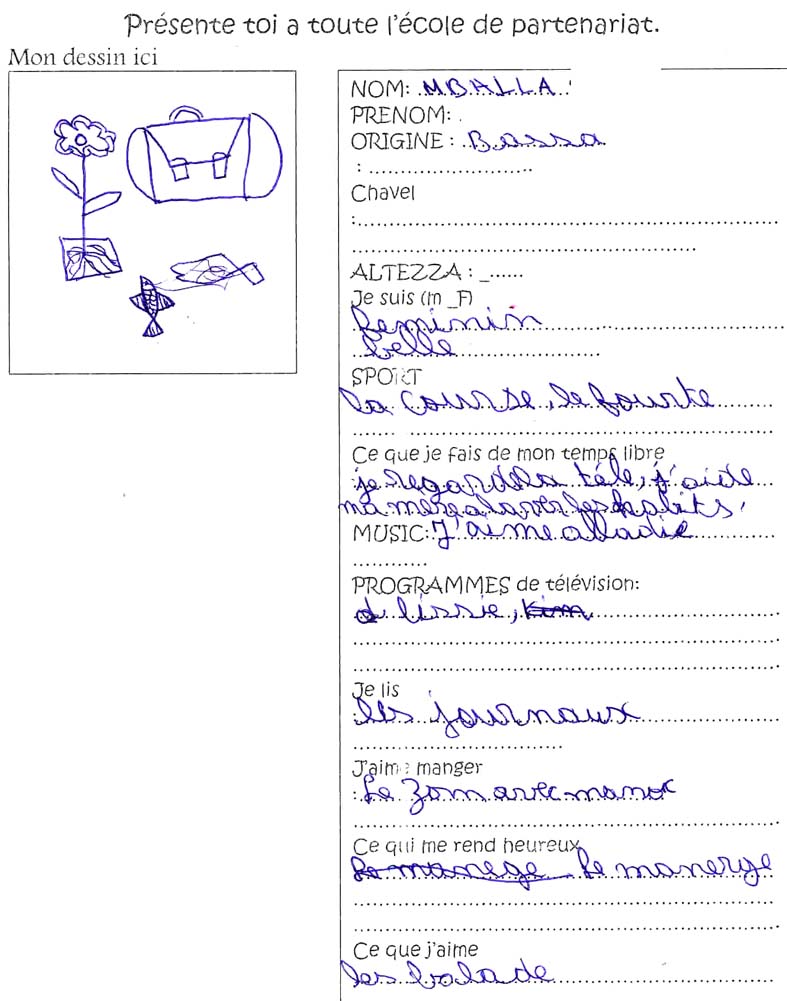 Présente toi a toute l'école de partenariat.
Mon dessin ici
NOM: MBALLA
PRENOM: .
ORIGINE : Bassa
: ..........................
Chavel
:..........................................................
..........................................................
ALTEZZA : _......
Je suis (m _F)
feminin
belle
SPORT
la course, le fourte
Ce que je fais de mon temps libre
je regarde la télé, j'aide
ma mere a laver les habits,
MUSIC: J'aime
PROGRAMMES de télévision:
kim
Je lis
: les journaux
J'aime manger
: le zom avec
Ce qui me rend heureux
le manege le manerge
Ce que j'aime
les balade